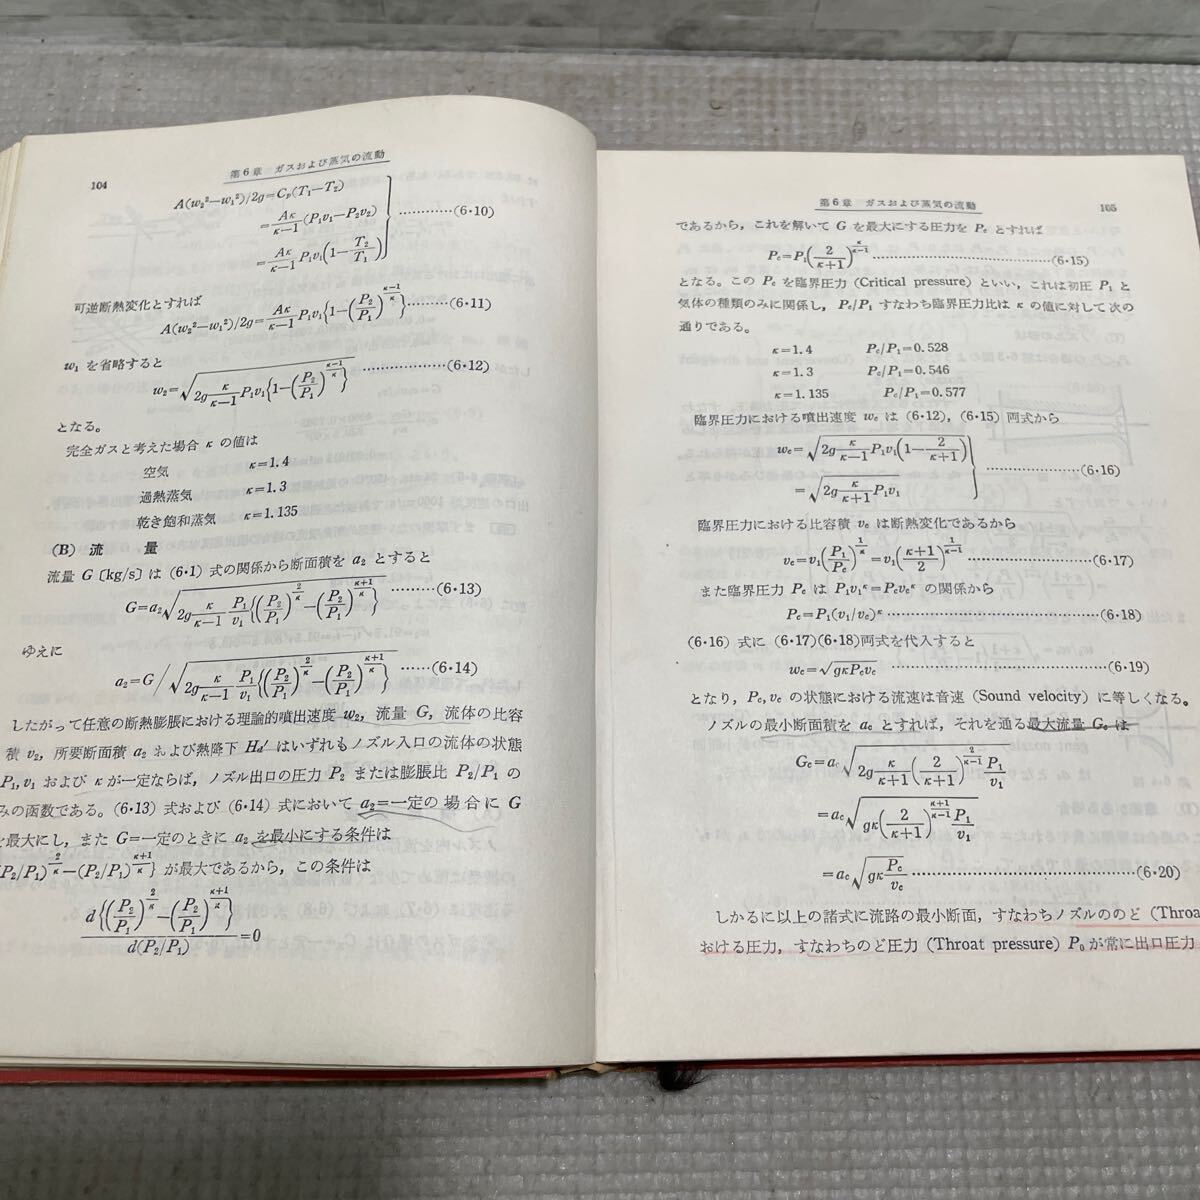 104
第6章 ガスおよび蒸気の流動
A(w₂²−w₁²)/2g=Cp(T₁−T₂)
=Aκ/(κ−1)(P₁v₁−P₂v₂) …………(6·10)
=Aκ/(κ−1) P₁v₁(1−T₂/T₁)
可逆断熱変化とすれば
A(w₂²−w₁²)/2g=Aκ/(κ−1) P₁v₁{1−(P₂/P₁)^((κ−1)/κ)} ………(6·11)
w₁ を省略すると
w₂=√(2g κ/(κ−1) P₁v₁{1−(P₂/P₁)^((κ−1)/κ)}) ………………(6·12)
となる。
完全ガスと考えた場合 κ の値は
空気 κ=1.4
過熱蒸気 κ=1.3
乾き飽和蒸気 κ=1.135
(B) 流 量
流量 G〔kg/s〕は (6·1) 式の関係から断面積を a₂ とすると
G=a₂√(2g κ/(κ−1) P₁/v₁{(P₂/P₁)^(2/κ)−(P₂/P₁)^((κ+1)/κ)}) ………(6·13)
ゆえに
a₂=G/√(2g κ/(κ−1) P₁/v₁{(P₂/P₁)^(2/κ)−(P₂/P₁)^((κ+1)/κ)}) ……(6·14)
したがって任意の断熱膨脹における理論的噴出速度 w₂, 流量 G, 流体の比容
積 v₂, 所要断面積 a₂ および熱降下 Hd′ はいずれもノズル入口の流体の状態
P₁, v₁ および κ が一定ならば, ノズル出口の圧力 P₂ または膨脹比 P₂/P₁ の
みの函数である。(6·13) 式および (6·14) 式において a₂=一定の場合に G
を最大にし, また G=一定のときに a₂ を最小にする条件は
(P₂/P₁)^(2/κ)−(P₂/P₁)^((κ+1)/κ)} が最大であるから, この条件は
d{(P₂/P₁)^(2/κ)−(P₂/P₁)^((κ+1)/κ)}/d(P₂/P₁)=0
第6章 ガスおよび蒸気の流動
105
であるから, これを解いて G を最大にする圧力を Pc とすれば
Pc=P₁(2/(κ+1))^(κ/(κ−1)) …………………………(6·15)
となる。この Pc を臨界圧力 (Critical pressure) といい, これは初圧 P₁ と
気体の種類のみに関係し, Pc/P₁ すなわち臨界圧力比は κ の値に対して次の
通りである。
κ=1.4 Pc/P₁=0.528
κ=1.3 Pc/P₁=0.546
κ=1.135 Pc/P₁=0.577
臨界圧力における噴出速度 wc は (6·12), (6·15) 両式から
wc=√(2g κ/(κ−1) P₁v₁(1−2/(κ+1)))
=√(2g κ/(κ+1) P₁v₁) ………………(6·16)
臨界圧力における比容積 vc は断熱変化であるから
vc=v₁(P₁/Pc)^(1/κ)=v₁((κ+1)/2)^(1/(κ−1)) …………………(6·17)
また臨界圧力 Pc は P₁v₁^κ=Pcvc^κ の関係から
Pc=P₁(v₁/vc)^κ …………………………………(6·18)
(6·16) 式に (6·17)(6·18)両式を代入すると
wc=√gκPcvc …………………………………(6·19)
となり, Pc, vc の状態における流速は音速 (Sound velocity) に等しくなる。
ノズルの最小断面積を ac とすれば, それを通る最大流量 Gc は
Gc=ac√(2g κ/(κ+1)(2/(κ+1))^(2/(κ−1)) P₁/v₁)
=ac√(gκ(2/(κ+1))^((κ+1)/(κ−1)) P₁/v₁)
=ac√(gκ Pc/vc) …………………………………(6·20)
しかるに以上の諸式に流路の最小断面, すなわちノズルののど (Throa
おける圧力, すなわちのど圧力 (Throat pressure) P₀ が常に出口圧力